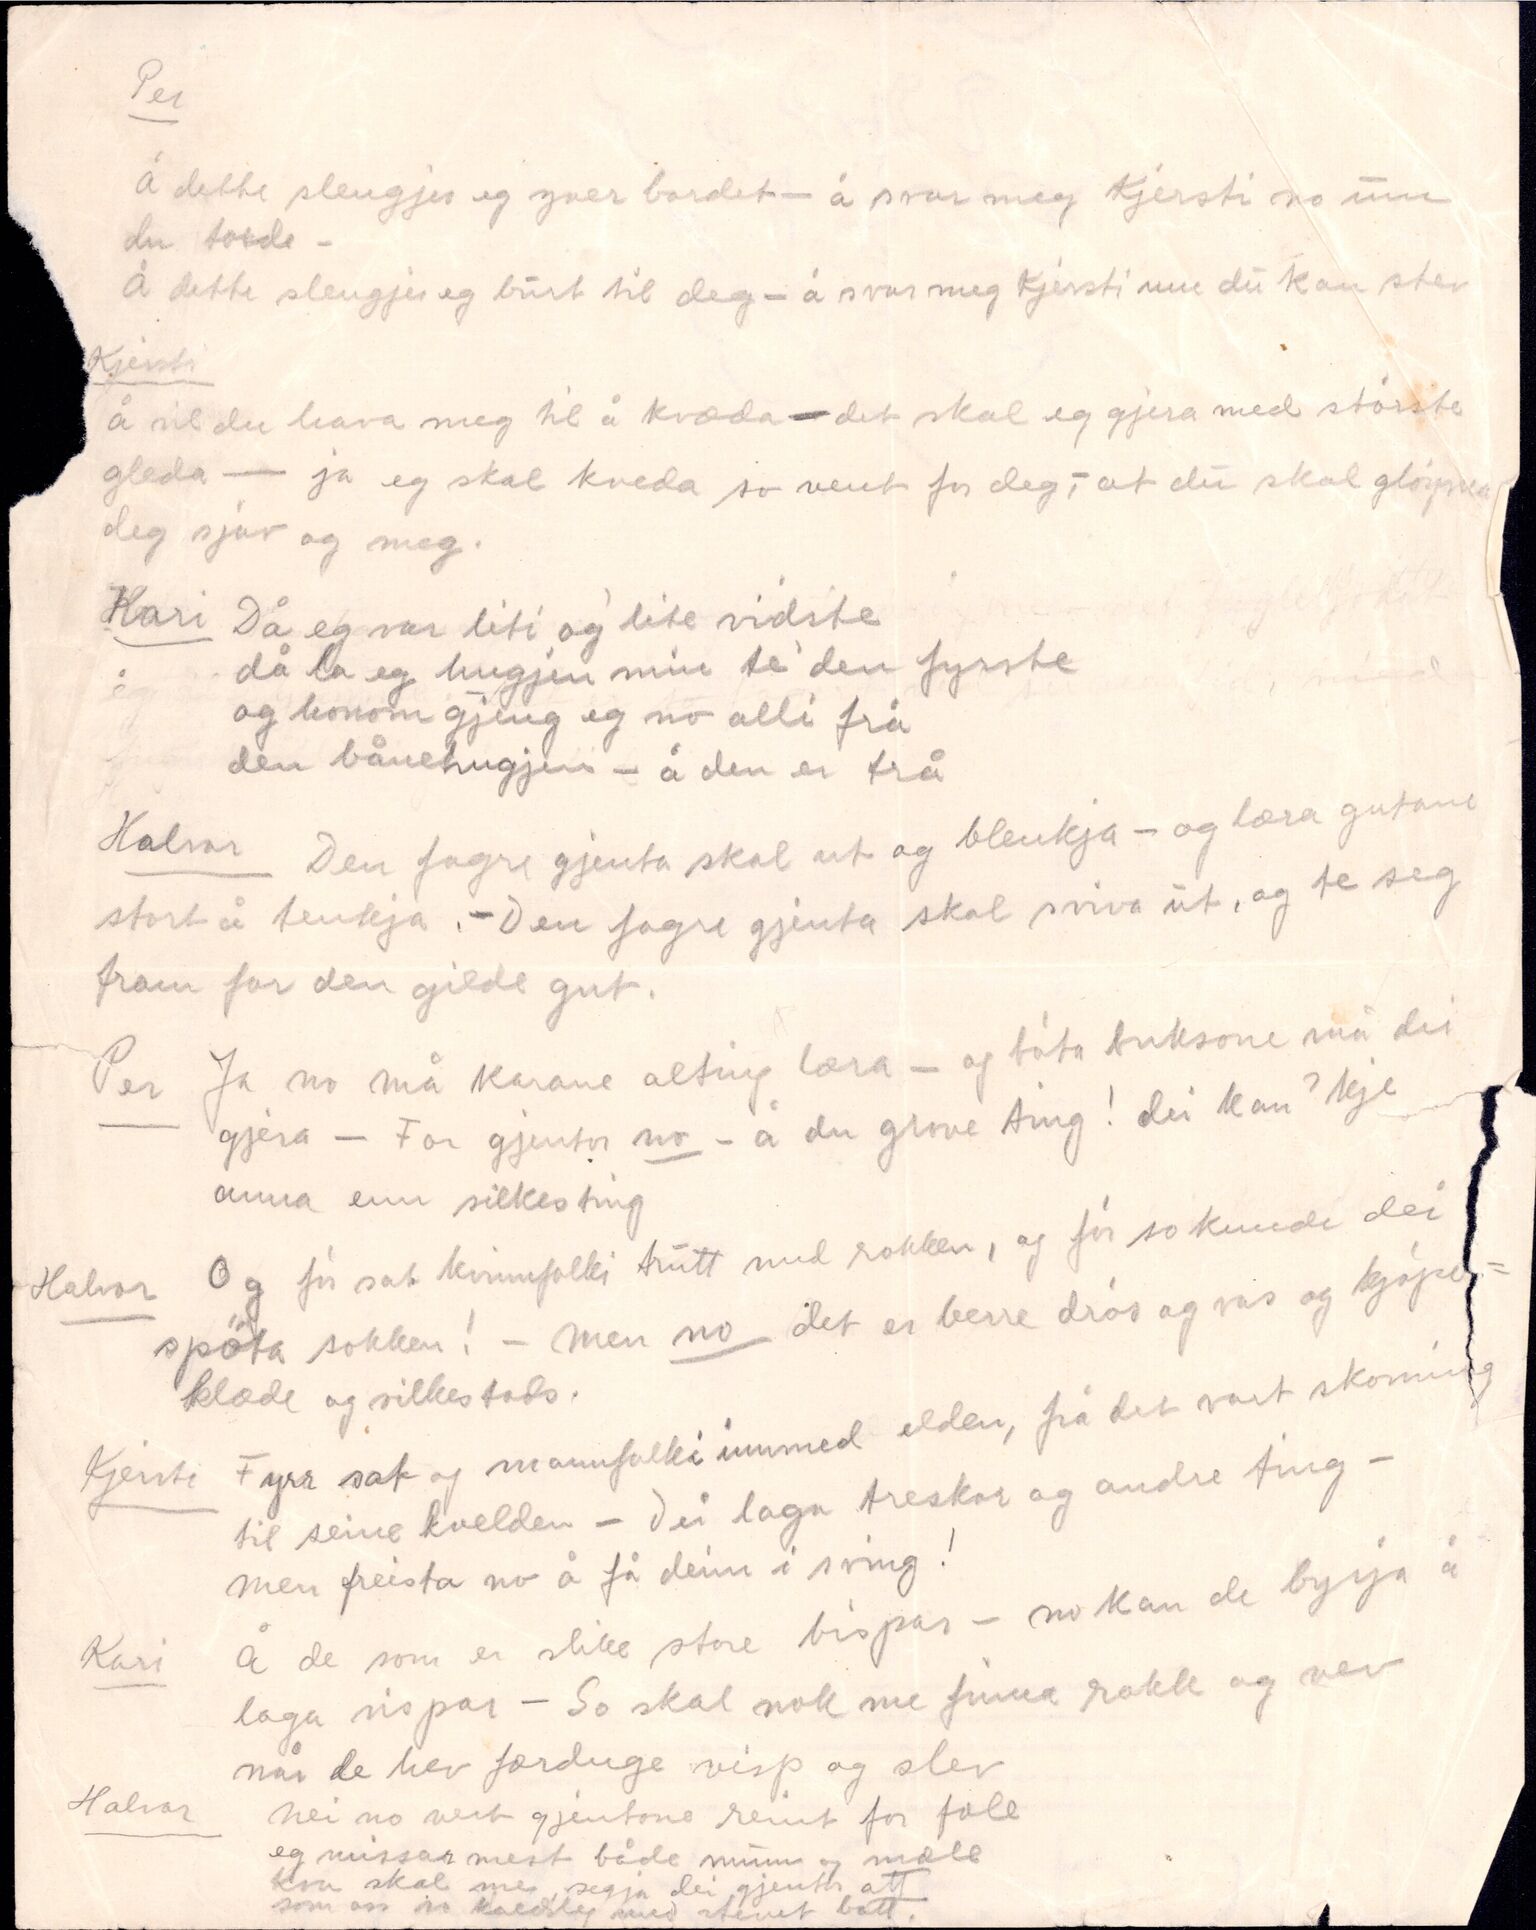 Per
Å dette slengjer eg yver bordet – å svar meg Kjersti no um
du torde –
Å dette slengjer eg burt til deg – å svar meg Kjersti um du kan stev
Kjersti
å vil du hava meg til å kvæda – det skal eg gjera med største
gleda — ja eg skal kveda so vent for deg, – at du skal gløyma
deg sjøv og meg.
Kari Då eg var liti og lite vidste
då la eg hugjen min te den fyrste
og honom gjeng eg no alli frå
den bånehugjen – å den er trå
Halvor Den fagre gjenta skal ut og blenkja – og læra gutane
stort å tenkja. – Den fagre gjenta skal sviva ut, og te seg
fram for den gilde gut.
Per Ja no må karane alting læra – og bøta buksone må dei
gjera – For gjentor no – å du grove ting! dei kan 'kje
anna enn silkesting
Halvor Og fór sat kvinnfolki trutt med rokken, og fór so kunde dei
spöta sokken! – Men no det er berre drós og vas og kjøpe=
klæde og silkestads.
Kjersti Fyrr sat og mannfolki innmed elden, frå det vart skoming
til seine kvelden – Dei laga treskor og andre ting –
men freista no å få deim i sving!
Kari Å de som er slike store bispar – no kan de byrja å
laga vispar – So skal nok me finna rokk og vev
når de hev færduge visp og slev
Halvor Nei no vert gjentone reint for fæle
eg missar mest både munn og mæle
kva skal me segja dei gjentor att
som oss no med stevet batt.